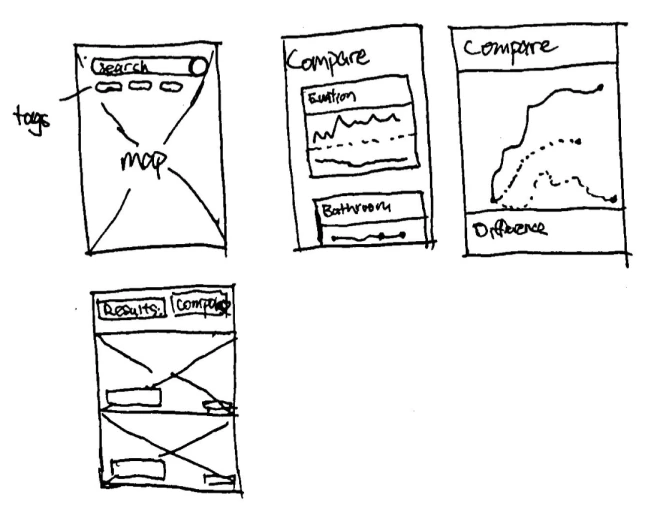 search
tags
map
Compare
Bathroom
Compare
Difference
Results
Compare